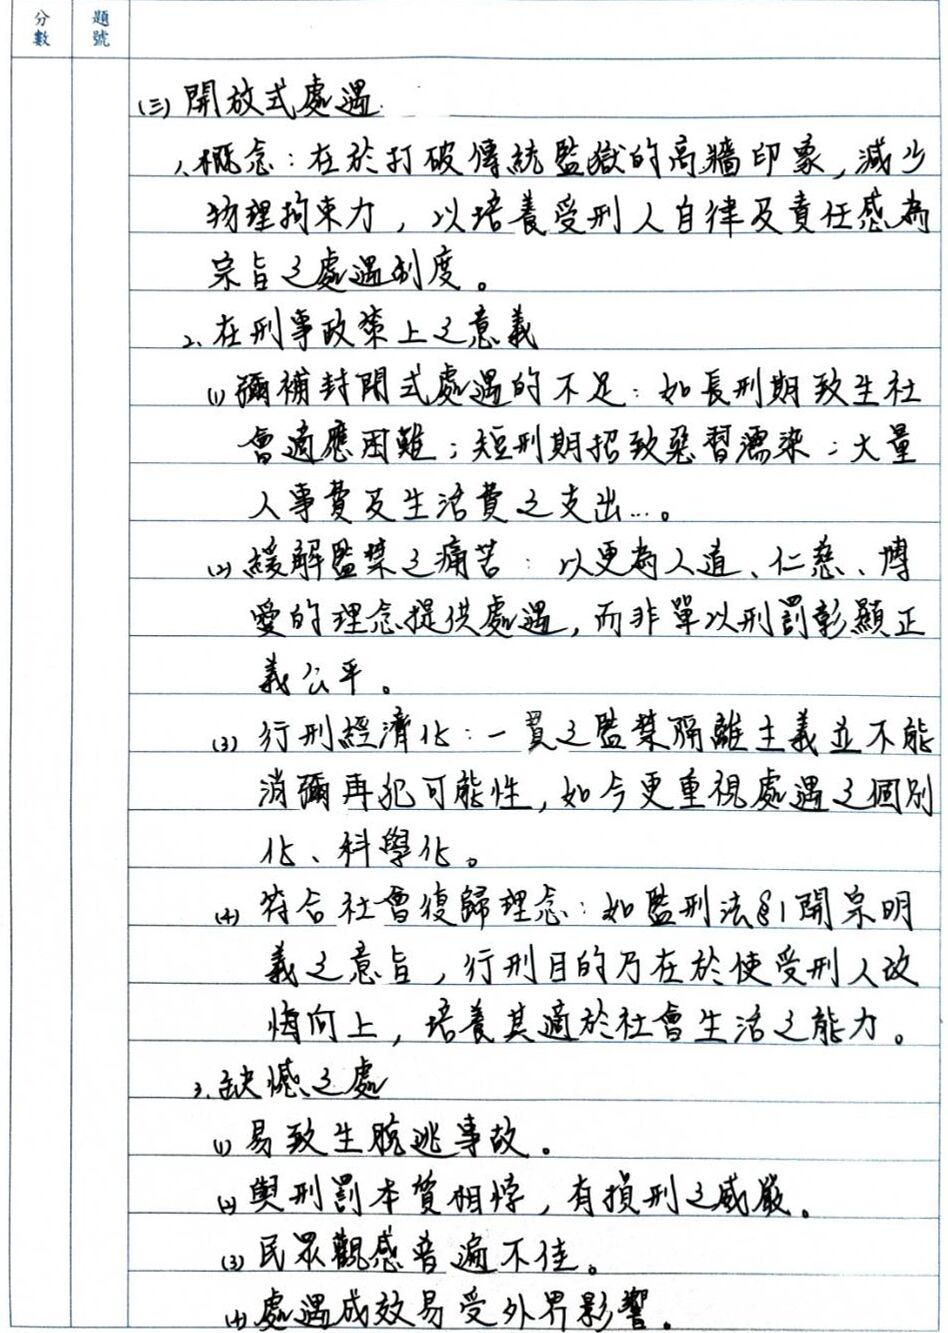 分數 題號
(三)開放式處遇
1.概念:在於打破傳統監獄的高牆印象,減少
物理拘束力,以培養受刑人自律及責任感為
宗旨之處遇制度。
2.在刑事政策上之意義
(1)彌補封閉式處遇的不足:如長刑期致生社
會適應困難;短刑期招致惡習濡染;大量
人事費及生活費之支出…。
(2)緩解監禁之痛苦:以更為人道、仁慈、博
愛的理念提供處遇,而非單以刑罰彰顯正
義公平。
(3)行刑經濟化:一貫之監禁隔離主義並不能
消彌再犯可能性,如今更重視處遇之個別
化、科學化。
(4)符合社會復歸理念:如監刑法§1開宗明
義之意旨,行刑目的乃在於使受刑人改
悔向上,培養其適於社會生活之能力。
3.缺憾之處
(1)易致生脫逃事故。
(2)與刑罰本質相悖,有損刑之威嚴。
(3)民眾觀感普遍不佳。
(4)處遇成效易受外界影響。